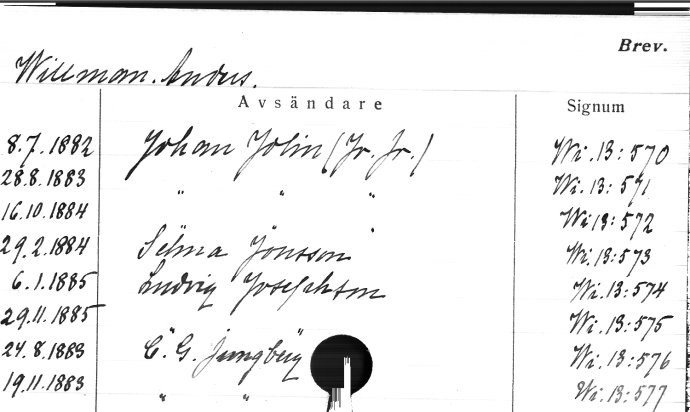 Brev.
Willman. Anders.
Avsändare Signum
8.7.1882 Johan Jolin (Jr. Jr.) Wi.13:570
28.8.1883 " " " Wi.13:571
16.10.1884 Wi 13:572
29.2.1884 Selma Jonsson Wi.13:573
6.1.1885 Ludvig Josephson Wi.13:574
29.11.1885 Wi.13:575
24.8.1883 C. G. Jungberg Wi.13:576
19.11.1883 " " Wi.13:577